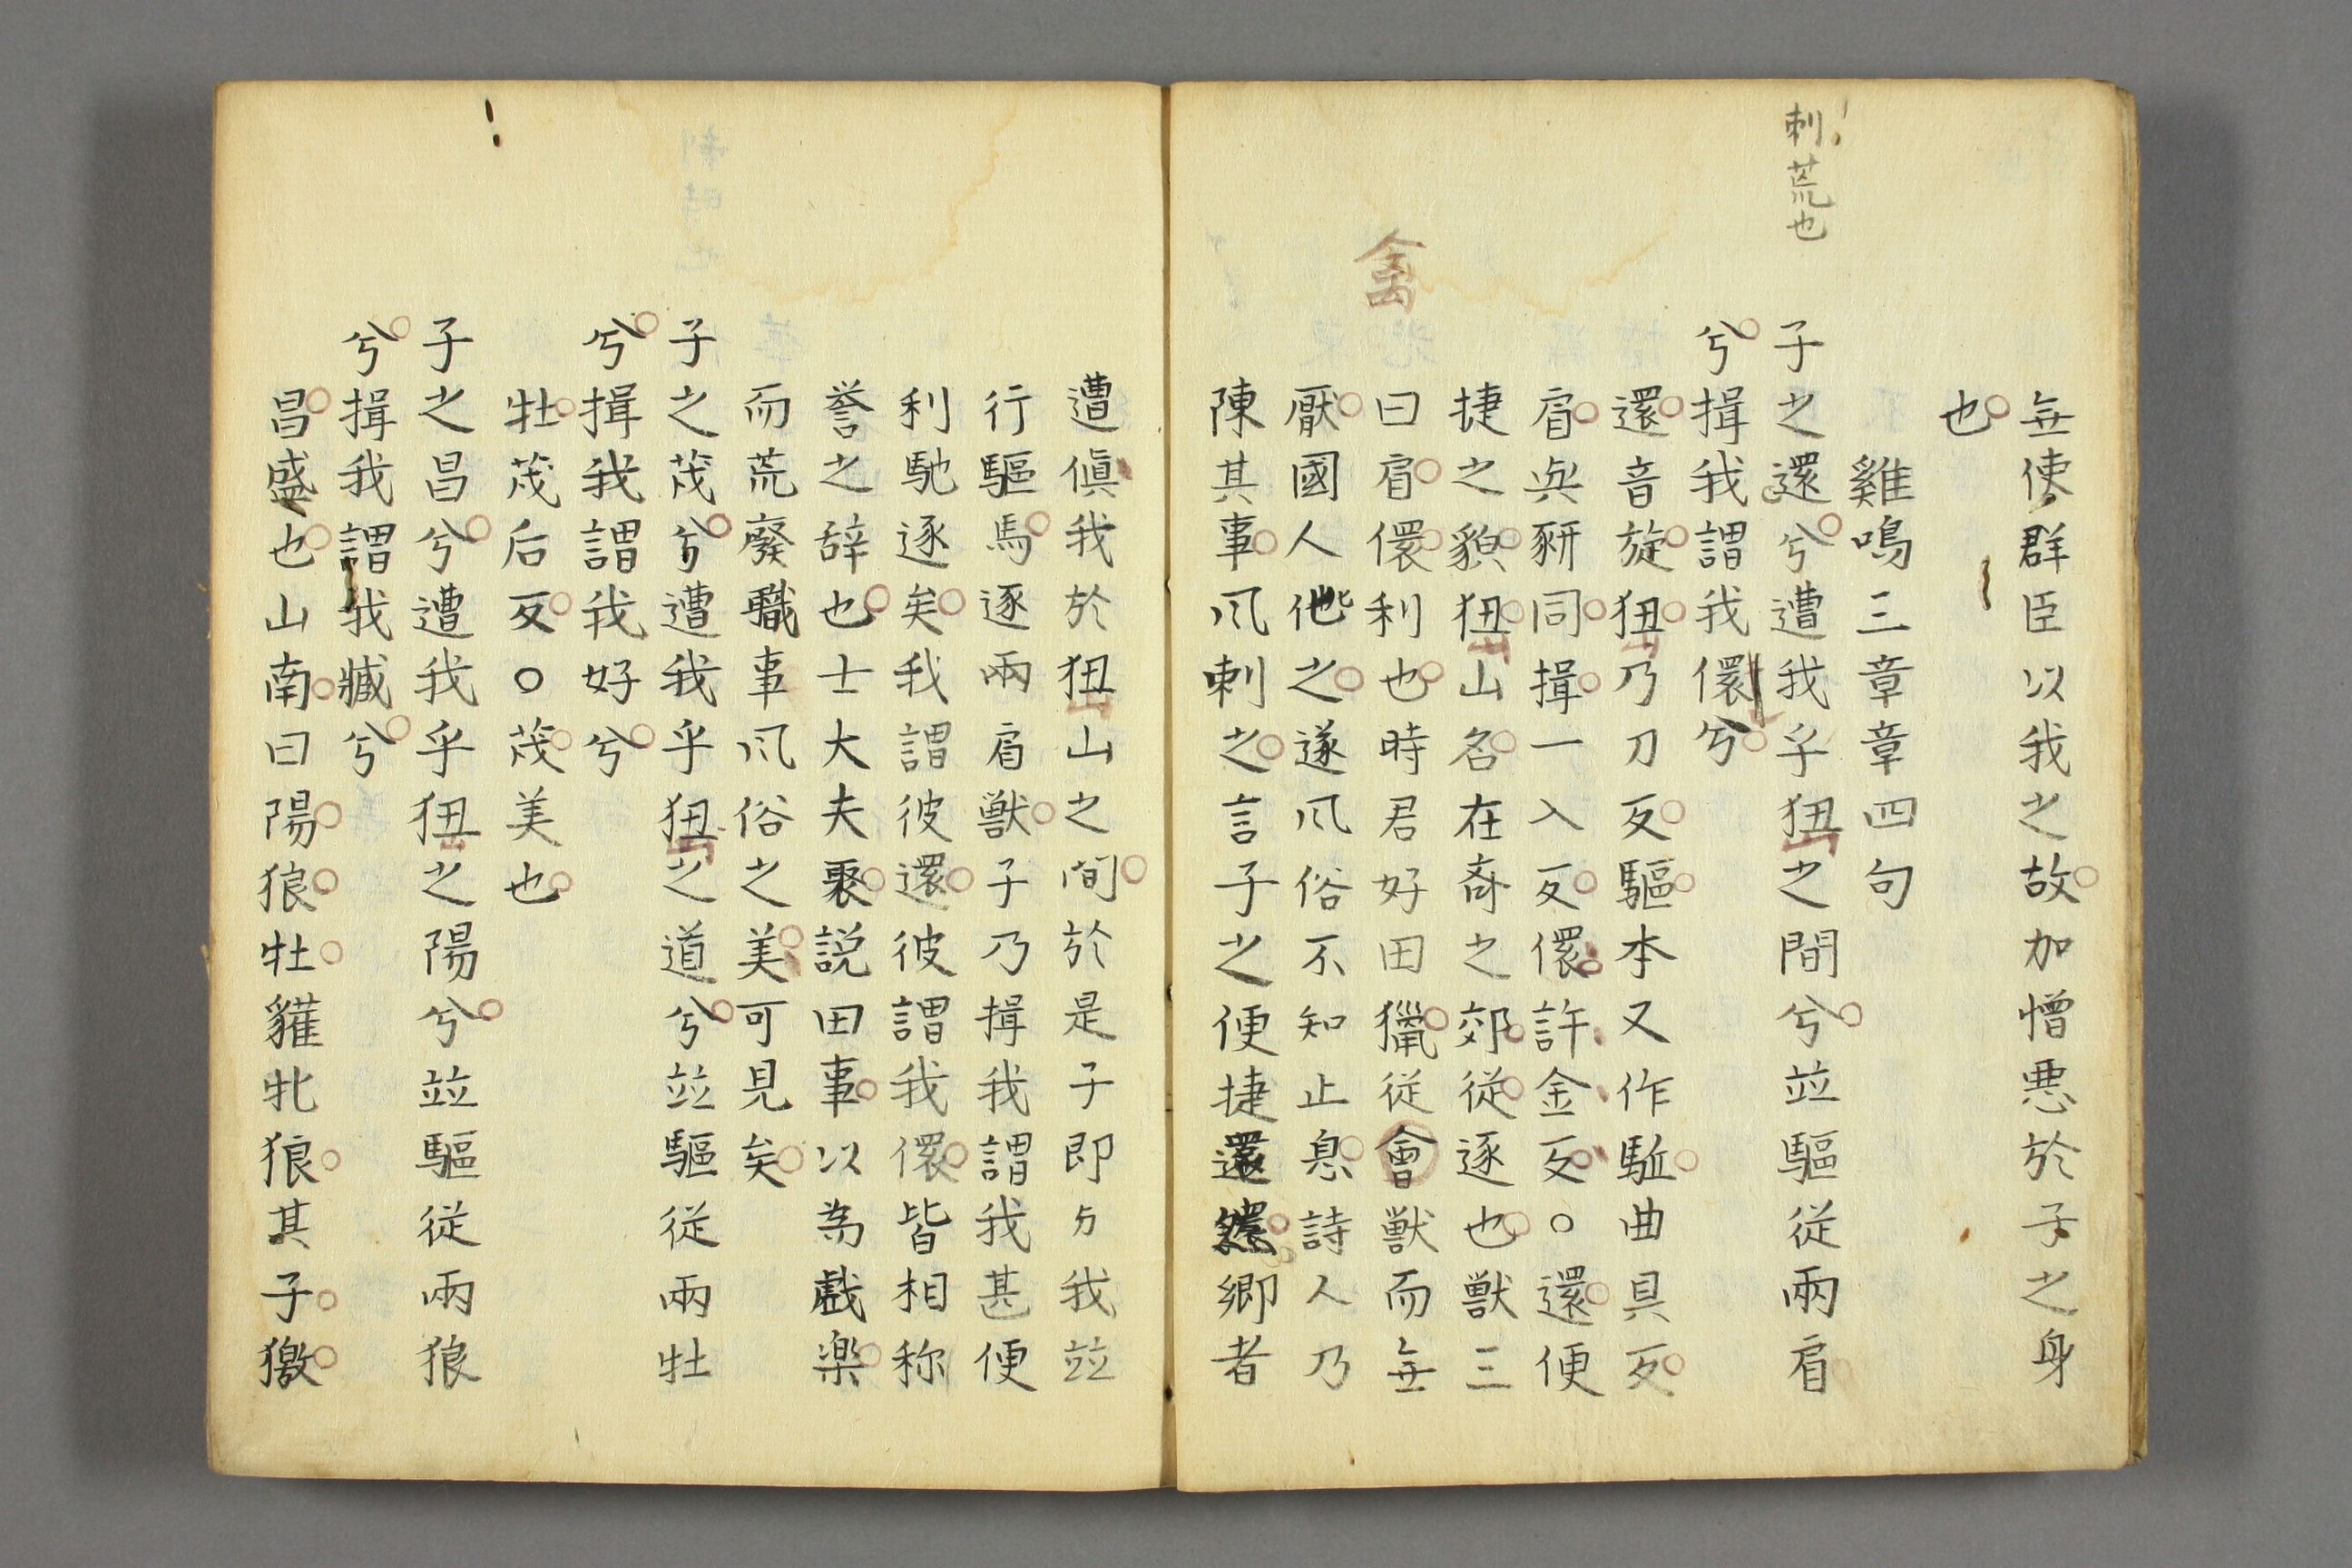 無使群臣以我之故加憎悪於子之身
也
雞鳴三章章四句
刺荒也
子之還兮遭我乎狃之間兮竝驅従兩肩
兮揖我謂我儇兮
還音旋狃乃刀反驅本又作駈曲具反
肩與豣同揖一入反儇許全反○還便
捷之貌狃山名在斎之郊従逐也獣三
曰肩儇利也時君好田獵従會獣而無
禽
厭國人化之遂風俗不知止息詩人乃
陳其事風刺之言子之便捷還然郷者
遭値我於狃山之間於是子即与我竝
行驅馬逐兩肩獣子乃揖我謂我甚便
利馳逐矣我謂彼還彼謂我儇皆相称
誉之辞也士大夫聚説田事以為戯楽
而荒廢職事風俗之美可見矣
子之茂兮遭我乎狃之道兮竝驅従兩牡
兮揖我謂我好兮
牡茂后反○茂美也
子之昌兮遭我乎狃之陽兮竝驅従兩狼
兮揖我謂我臧兮
昌盛也山南曰陽狼牡貛牝狼其子獥